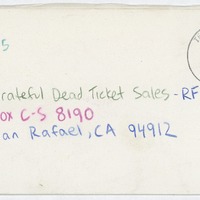 5
rateful Dead Ticket Sales - RF
ox C-S 8190
an Rafael, CA 94912